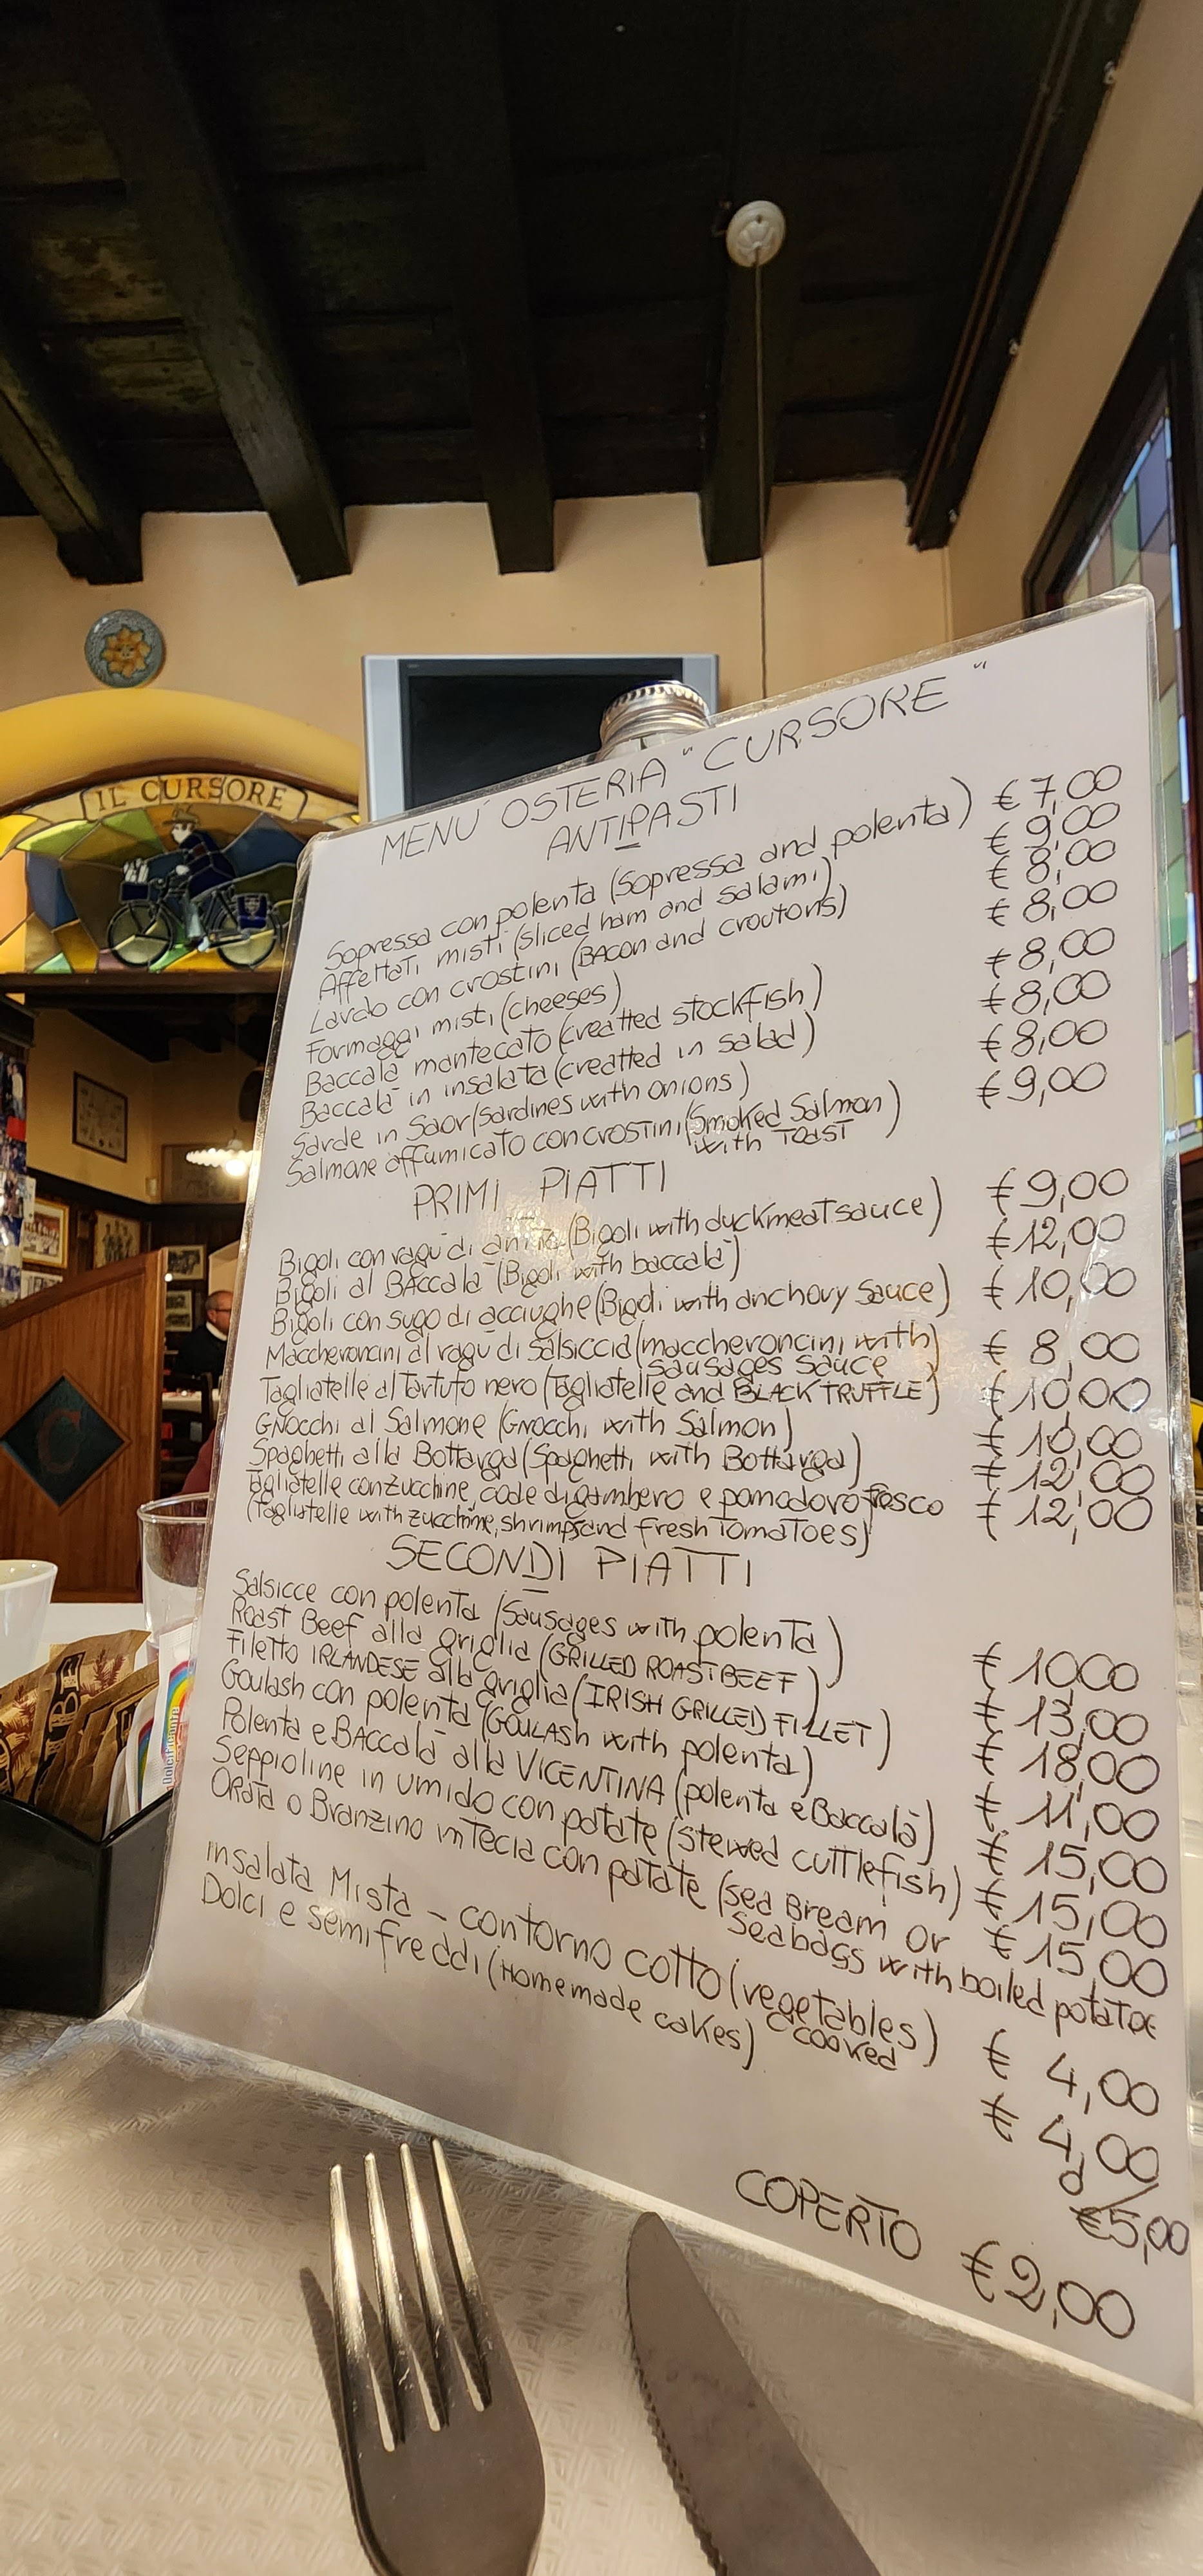 IL CURSORE
MENÚ OSTERIA "CURSORE"
ANTIPASTI
Sopressa con polenta (Sopressa and polenta) € 7,00
Affettati misti (Sliced ham and salami) € 9,00
Lardo con crostini (Bacon and croutons) € 8,00
Formaggi misti (cheeses) € 8,00
Baccalà mantecato (creatted stockfish) € 8,00
Baccalà in insalata (creatted in salad) € 8,00
Sarde in Saor (Sardines with onions) € 8,00
Salmone affumicato con crostini (Smoked Salmon € 9,00
with Toast)
PRIMI PIATTI
Bigoli con ragù di anitra (Bigoli with duckmeat sauce) € 9,00
Bigoli al BAccalà (Bigoli with baccalà) € 12,00
Bigoli con sugo di acciughe (Bigoli with anchovy sauce) € 10,00
Maccheroncini al ragù di salsiccia (maccheroncini with) € 8,00
sausages sauce
Tagliatelle al Tartufo nero (Tagliatelle and BLACK TRUFFLE) € 10,00
GNocchi al Salmone (GNocchi with Salmon) € 10,00
Spaghetti alla Bottarga (Spaghetti with Bottarga) € 12,00
Tagliatelle con zucchine, code di gambero e pomodoro fresco € 12,00
(Tagliatelle with zucchine, shrimps and fresh Tomatoes)
SECONDI PIATTI
Salsicce con polenta (Sausages with polenta) € 10,00
Roast Beef alla griglia (GRILLED ROAST BEEF) € 13,00
Filetto IRLANDESE alla griglia (IRISH GRILLED FILLET) € 18,00
Goulash con polenta (GOULASH with polenta) € 11,00
Polenta e BAccalà alla VICENTINA (polenta e Baccalà) € 15,00
Seppioline in umido con patate (stewed cuttlefish) € 15,00
ORATA o Branzino in Tecia con patate (sea Bream or € 15,00
Seabags with boiled potatoe
insalata Mista - contorno cotto (vegetables) € 4,00
cooked
Dolci e semifreddi (Homemade cakes) € 4,00
o
€5,00
COPERTO €2,00
C
Dolcificante